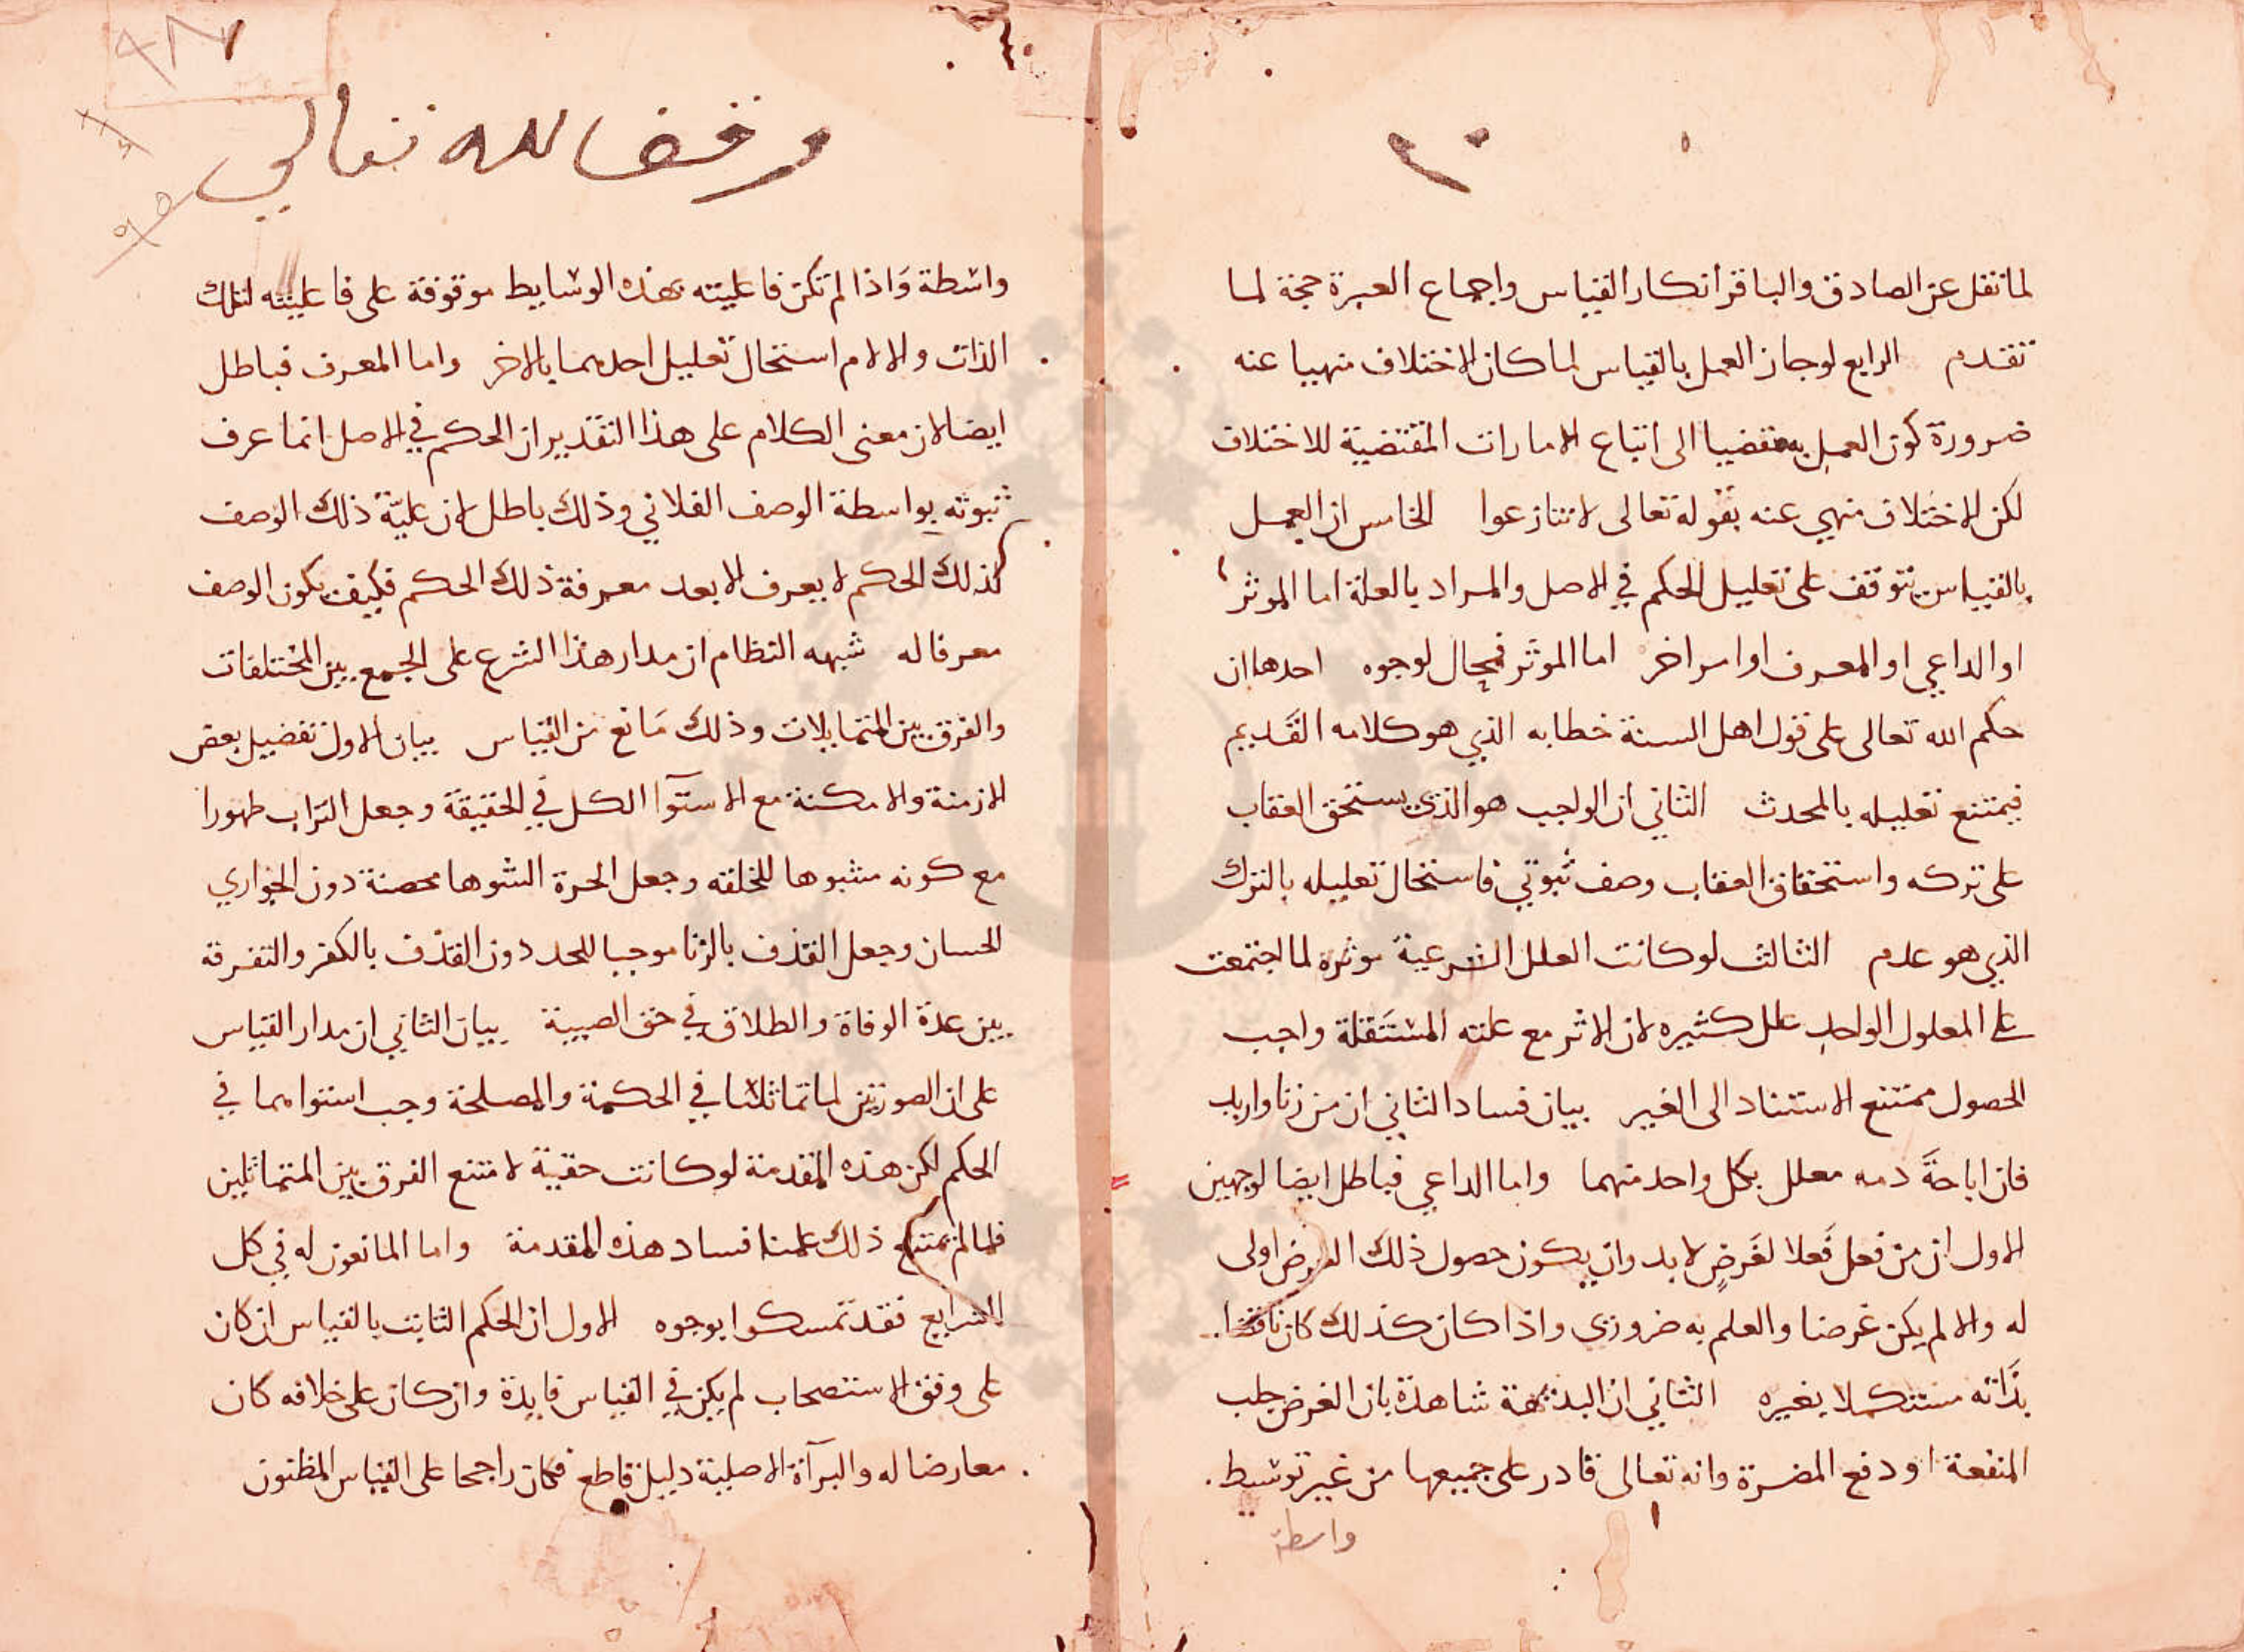 لما نقل عن الصادق والباقر انكار القياس واجماع العترة حجة لما
تقدم الرابع لو جاز العمل بالقياس لما كان الاختلاف منهيا عنه
ضرورة كون العمل به مفضيا الى اتباع الامارات المقتضية للاختلاف
لكن الاختلاف منهي عنه بقوله تعالى لا تنازعوا الخامس ان العمل
بالقياس يتوقف على تعليل الحكم في الاصل والمراد بالعلة اما الموثر
او الداعي او المعرف او امر اخر اما الموثر فمحال لوجوه احدها ان
حكم الله تعالى على قول اهل السنة خطابه الذي هو كلامه القديم
فيمتنع تعليله بالمحدث الثاني ان الواجب هو الذي يستحق العقاب
على تركه واستحقاق العقاب وصف ثبوتي فاستحال تعليله بالترك
الذي هو عدم الثالث لو كانت العلل الشرعية موثره لما اجتمعت
على المعلول الواحد علل كثيره لان الاثر مع علته المستقلة واجب
الحصول ممتنع الاستناد الى الغير بيان فساد الثاني ان من زنا وارتد
فان اباحة دمه معلل بكل واحد منهما واما الداعي فباطل ايضا لوجهين
الاول ان من فعل فعلا لغرض لا بد وان يكون حصول ذلك الغرض اولى
له والا لم يكن غرضا والعلم به ضروري واذا كان كذلك كان ناقصا
بذاته مستكملا بغيره الثاني ان البديهة شاهدة بان الغرض جلب
المنفعة او دفع المضرة وانه تعالى قادر على جميعها من غير توسيط
واسطة
٩٨٧
وقف لله تعالي
واسطة واذا لم تكن فاعليته بهذه الوسايط موقوفة على فاعليته لتلك
الذات والالام استحال تعليل احدهما بالاخر واما المعرف فباطل
ايضا لان معنى الكلام على هذا التقدير ان الحكم في الاصل انما عرف
ثبوته بواسطة الوصف الفلاني وذلك باطل لان علية ذلك الوصف
لذلك الحكم لا يعرف الا بعد معرفة ذلك الحكم فكيف يكون الوصف
معرفا له شبهه النظام ان مدار هذا الشرع على الجمع بين المختلفات
والفرق بين المتماثلات وذلك مانع من القياس بيان الاول تفضيل بعض
الازمنة والامكنة مع الاستوآ الكل في الحقيقة وجعل التراب طهورا
مع كونه مشوها للخلقه وجعل الحرة الشوها محصنة دون الجواري
الحسان وجعل القذف بالزنا موجبا للحد دون القذف بالكفر والتفرقة
بين عدة الوفاة والطلاق في حق الصبية بيان الثاني ان مدار القياس
على ان الصورتين لما تماثلتا في الحكمة والمصلحة وجب استواهما في
الحكم لكن هذه المقدمة لو كانت حقية لامتنع الفرق بين المتماثلين
فلما لم يمتنع ذلك علمنا فساد هذه المقدمة واما المانعون له في كل
الشرايع فقد تمسكوا بوجوه الاول ان الحكم الثابت بالقياس ان كان
على وفق الاستصحاب لم يكن في القياس فايدة وان كان على خلافه كان
معارضا له والبرآة الاصلية دليل قاطع فكان راجحا على القياس المظنون